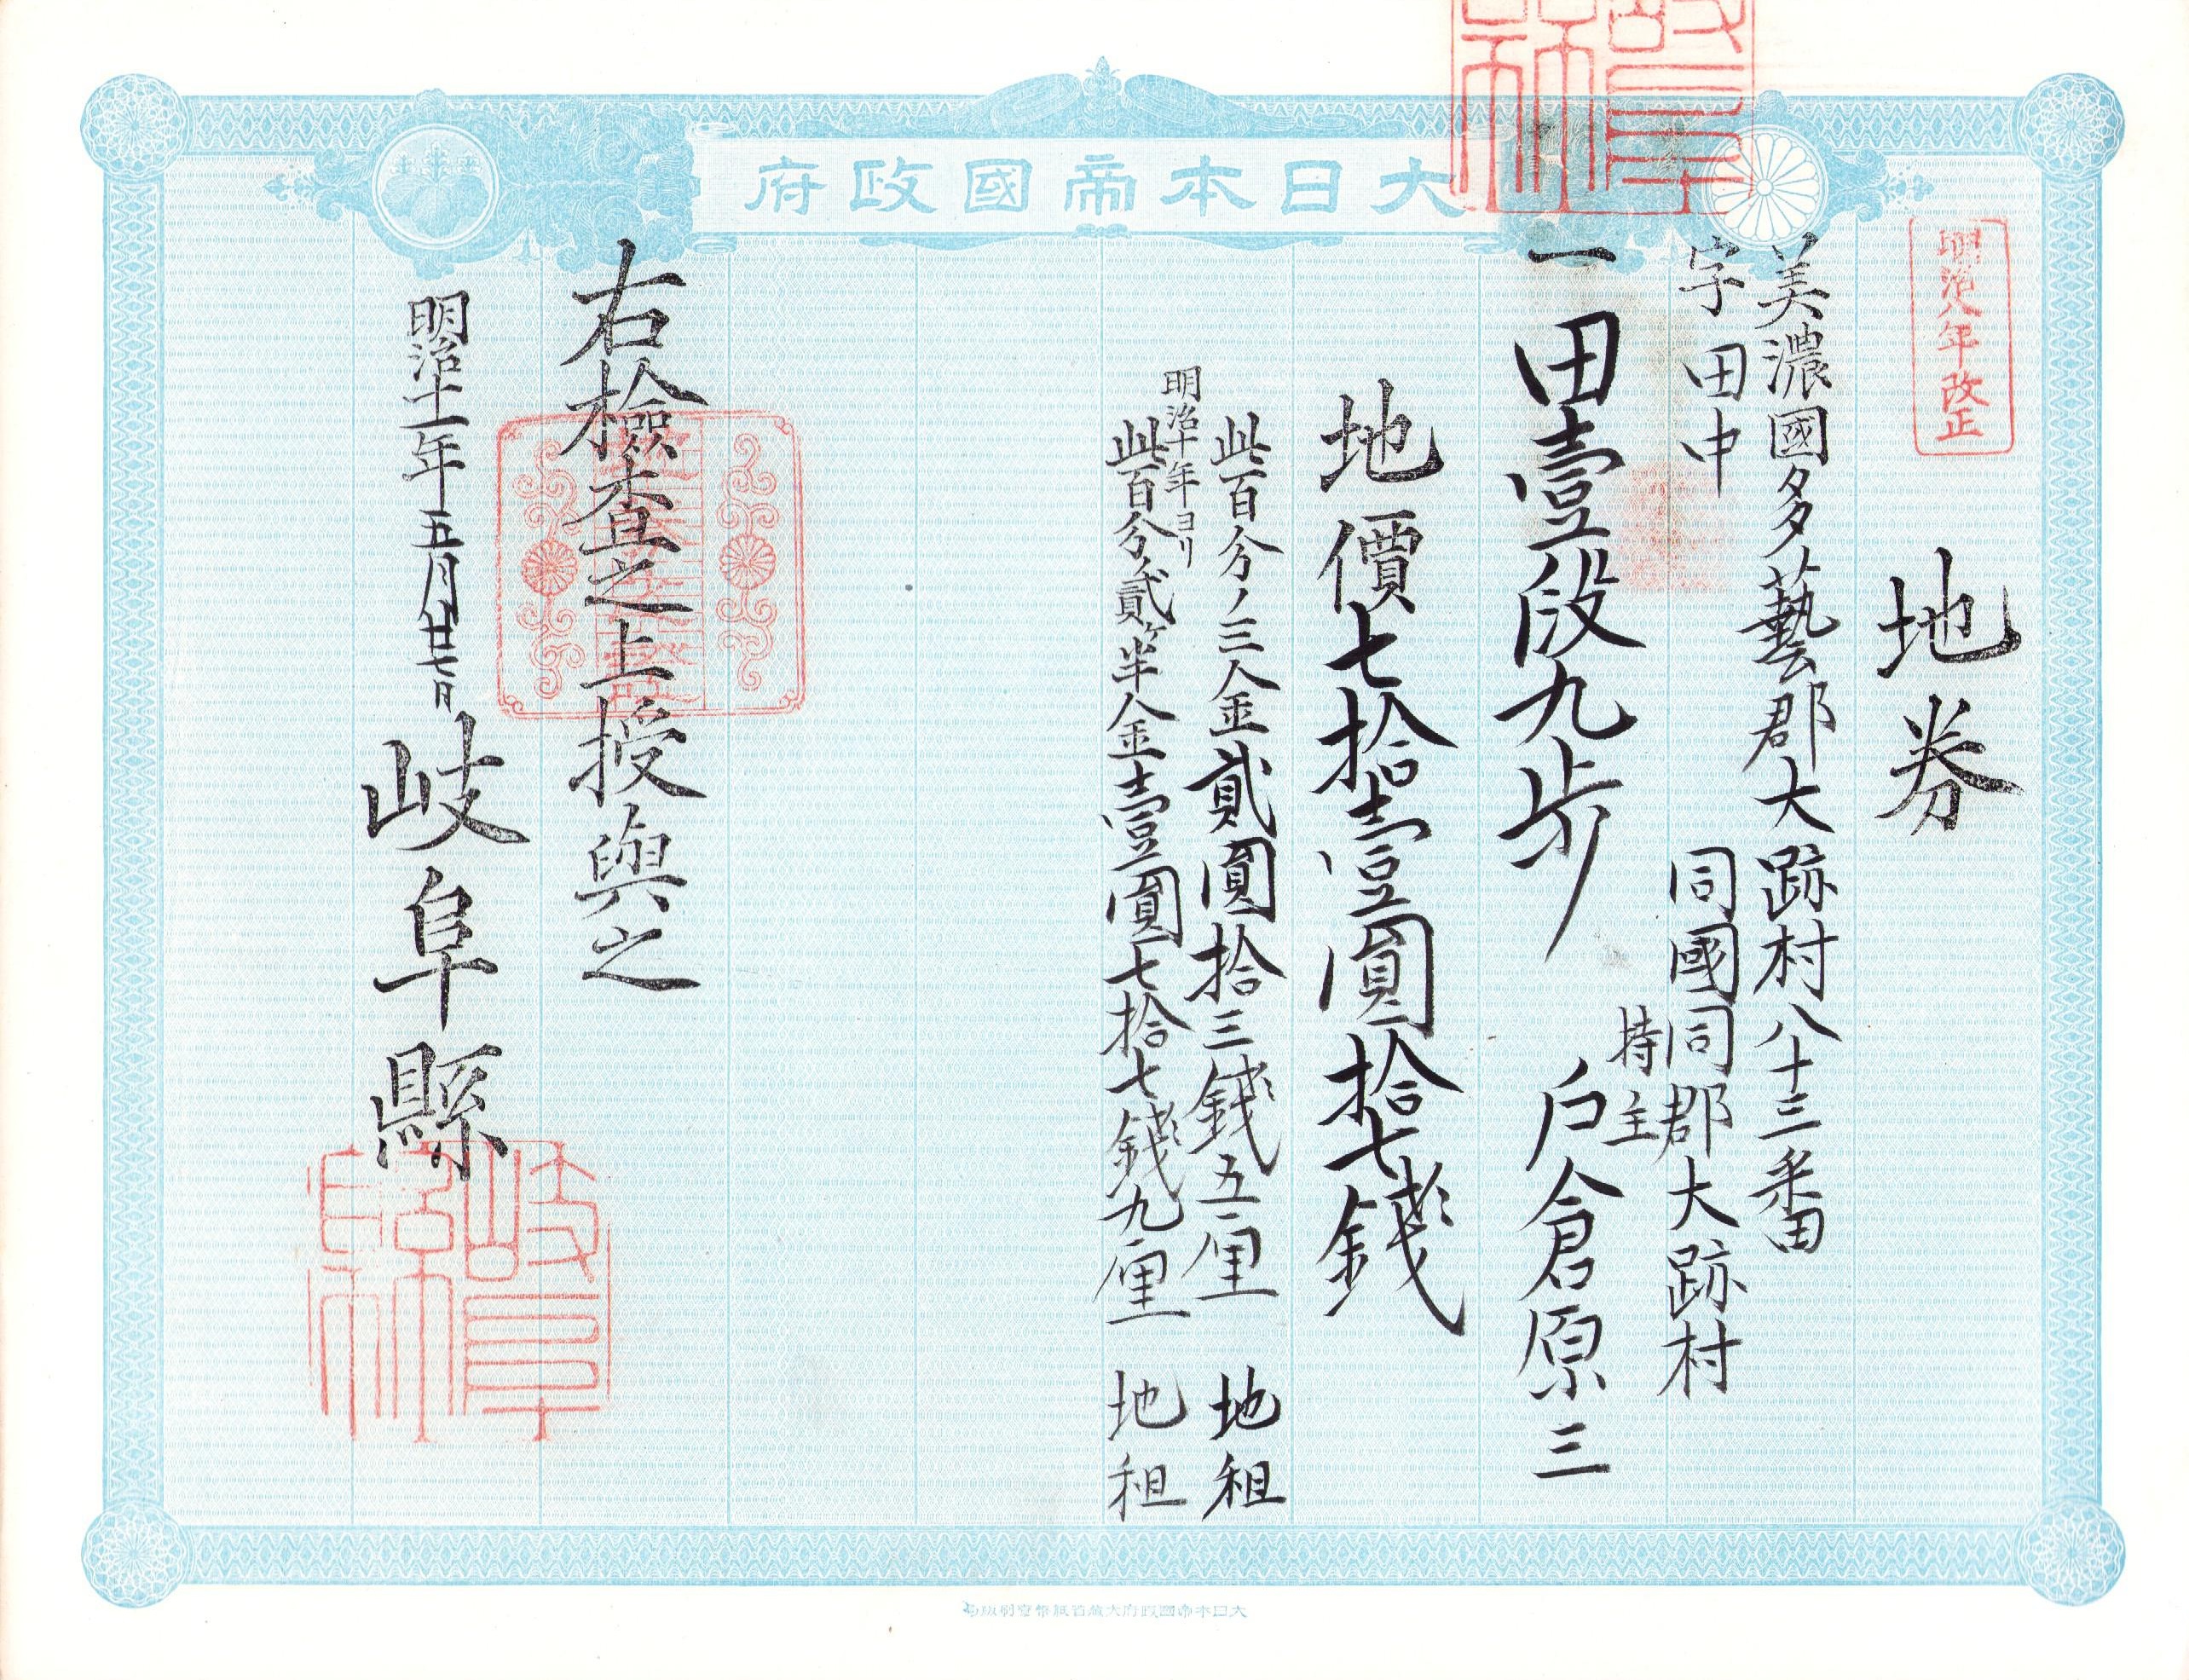 大日本帝國政府
明治八年改正
地券
美濃國多藝郡大跡村八十三番
字田中
同國同郡大跡村
持主
戸倉原三
一田壹段九歩
地價七拾壹圓拾七錢
此百分ノ三金貳圓拾三錢五厘 地租
明治十年ヨリ
此百分ノ貳ケ半金壹圓七拾七錢九厘 地租
右檢査之上授與之
明治十一年五月廿七日
岐阜縣
大日本帝國政府大藏省紙幣寮製造